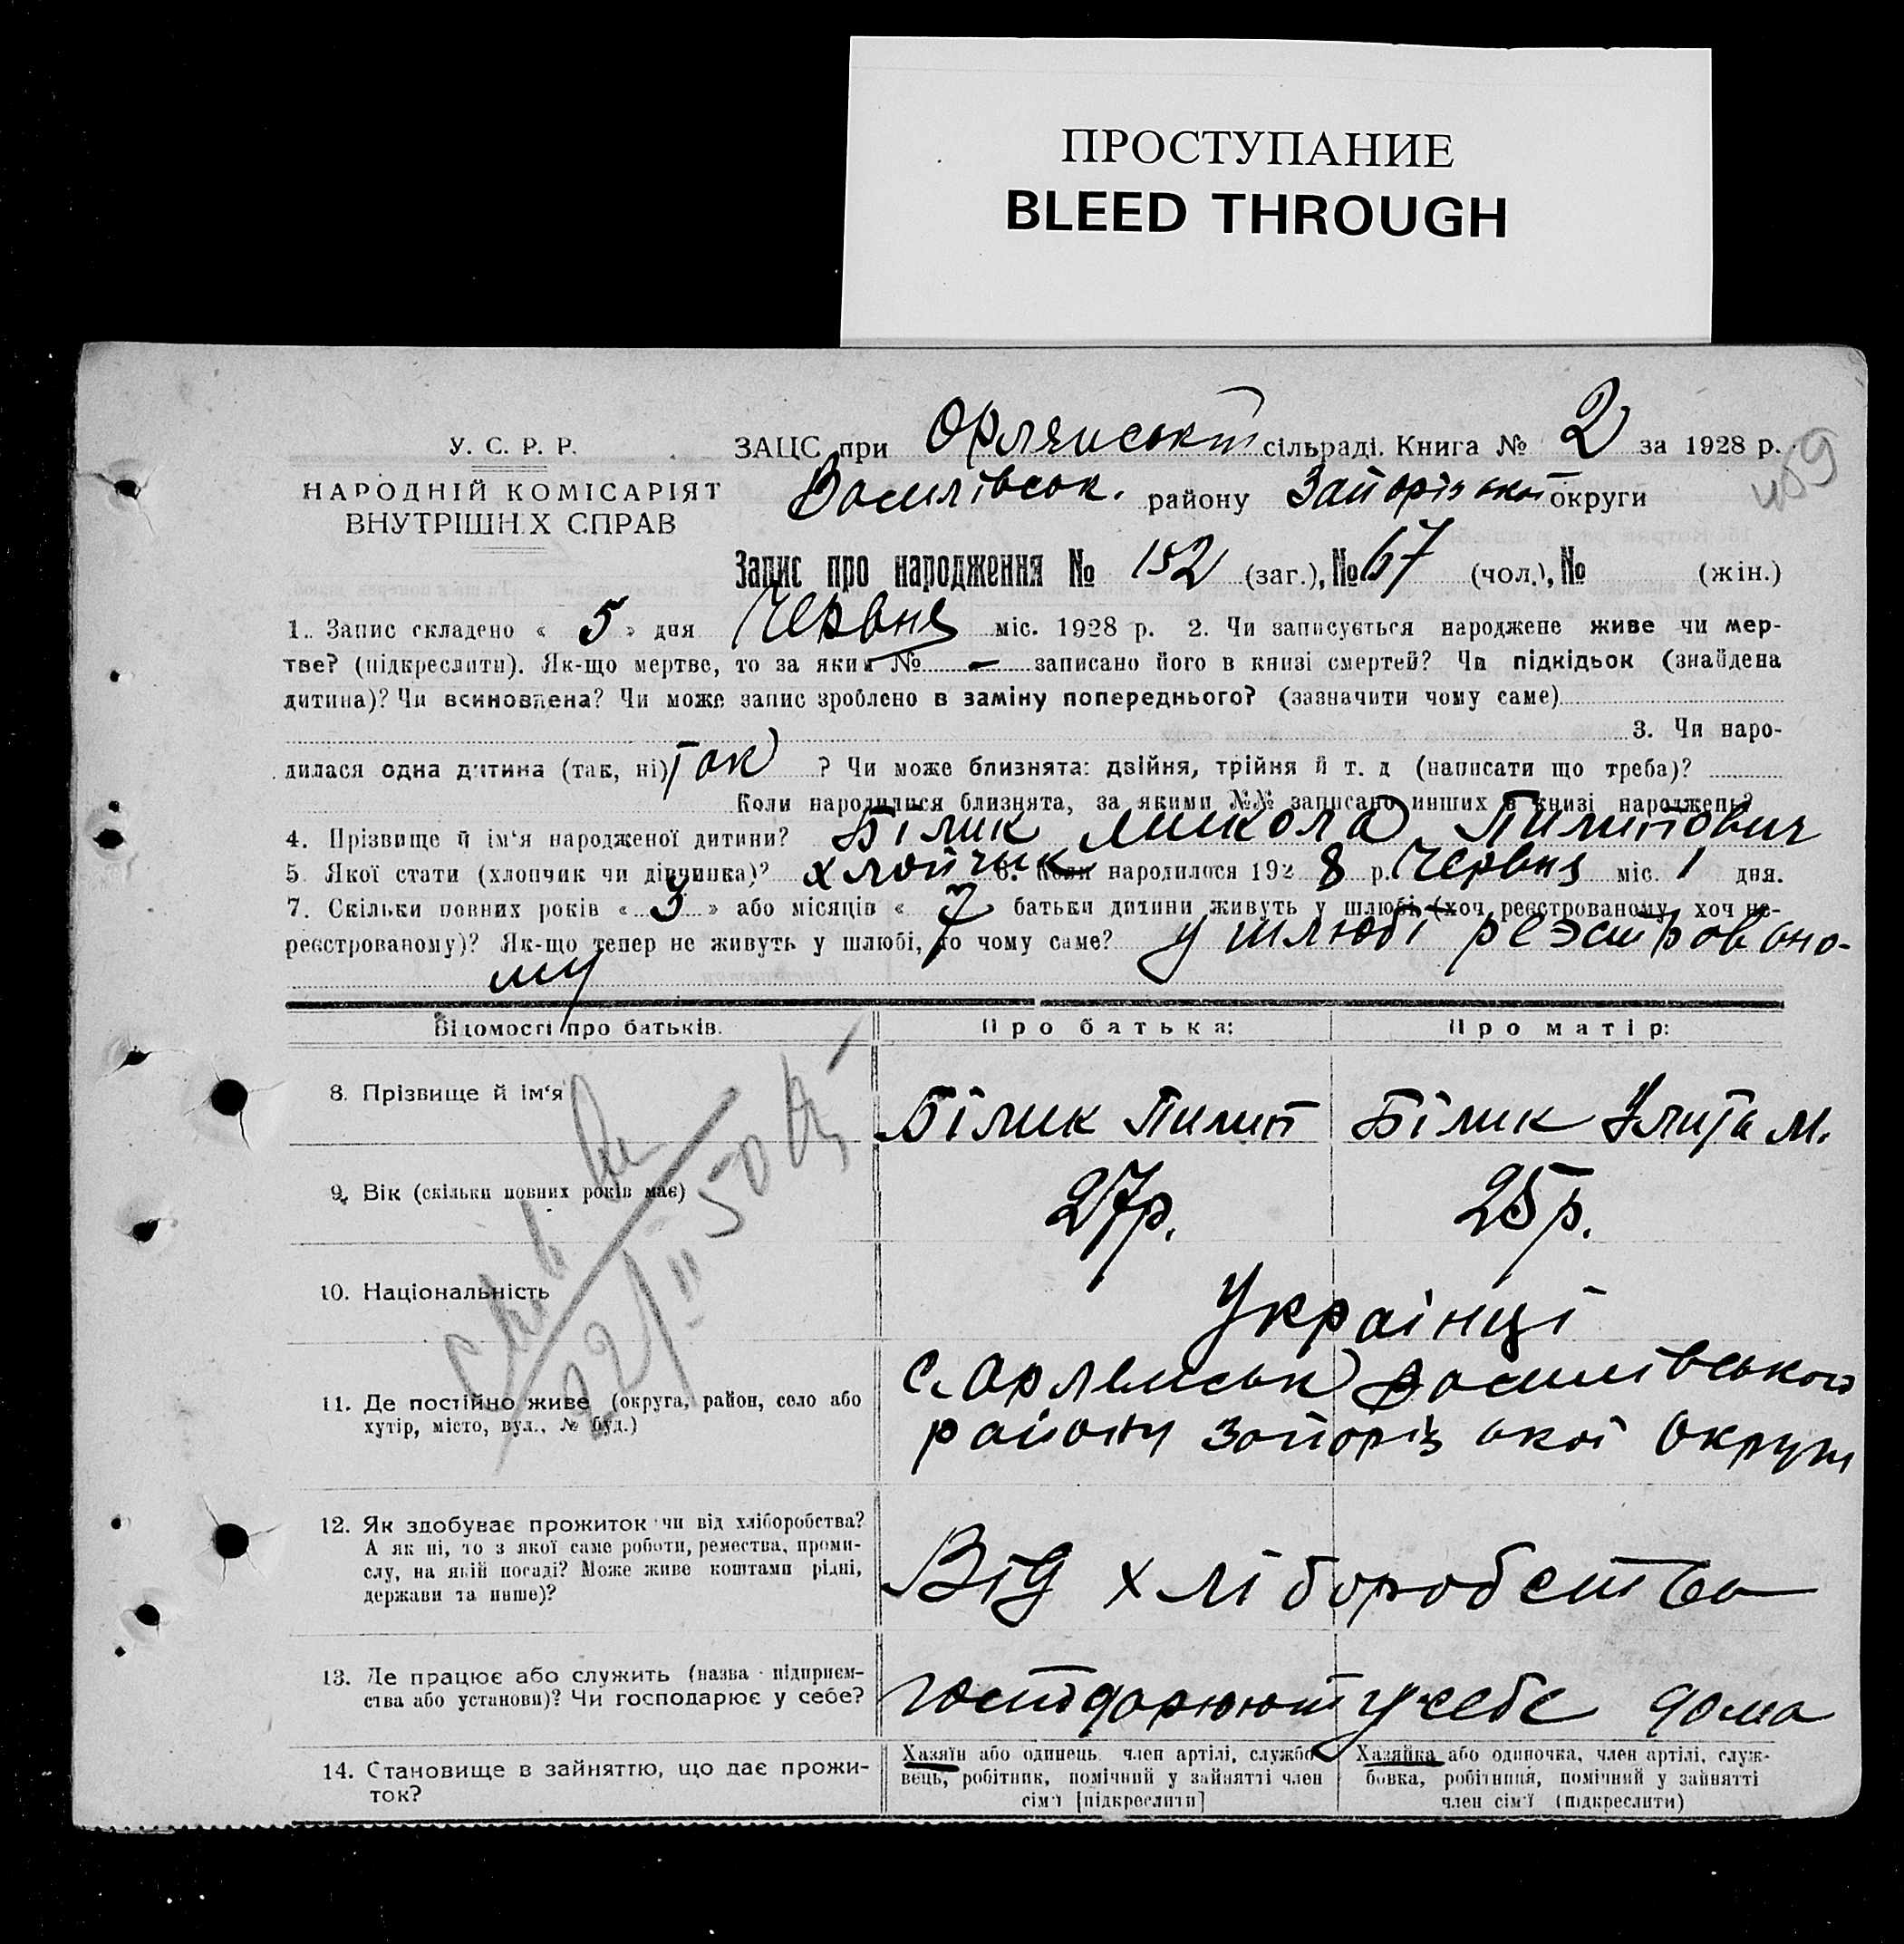 ПРОСТУПАНИЕ
BLEED THROUGH
У. С. Р. Р.
НАРОДНІЙ КОМІСАРІЯТ
ВНУТРІШНІХ СПРАВ
ЗАЦС при Орлянськіт сільраді. Книга № 2 за 1928 р.
409
Василівськ. району Запорізької округи
Запис про народження № 152 (заг.), № 67 (чол.), № (жін.)
1. Запис складено « 5 » дня Червня міс. 1928 р. 2. Чи записується народжене живе чи мер-
тве? (підкреслити). Як-що мертве, то за яким № — записано його в книзі смертей? Чи підкідьок (знайдена
дитина)? Чи всиновлена? Чи може запис зроблено в заміну попереднього? (зазначити чому саме)
3. Чи наро-
дилася одна дитина (так, ні) так ? Чи може близнята: двійня, трійня й т. д (написати що треба)?
Коли народилися близнята, за якими №№ записано инших в книзі народжень?
4. Прізвище й ім‘я народженої дитини? Білик Микола Пилипович
5 Якої стати (хлопчик чи дівчинка)? хлопчик 6. Коли народилося 1928 р. Червня міс. 1 дня.
7. Скільки повних років « 3 » або місяців « 7 батьки дитини живуть у шлюбі (хоч реєстрованому, хоч не-
реєстрованому)? Як-що тепер не живуть у шлюбі, то чому саме? у шлюбі реэстровано-
му
Відомості про батьків. Про батька: Про матір:
8. Прізвище й ім‘я Білик Пилип Білик Улита М.
9. Вік (скільки повних років має) 27р. 25р.
10. Національність Українці
11. Де постійно живе (округа, район, село або
хутір, місто, вул., № буд.)
с. Орлянськ Василівського
району Запорізької Округи
12. Як здобуває прожиток чи від хліборобства?
А як ні, то з якої саме роботи, ремества, проми-
слу, на якій посаді? Може живе коштами рідні,
держави та инше)?
Від хліборобства
13. Де працює або служить (назва підприєм-
ства або установи)? Чи господарює у себе?
господарюют у себе дома
14. Становище в зайняттю, що дає прожи-
ток?
Хазяїн або одинець член артілі, службо-
вець, робітник, помічний у зайнятті член
сім‘ї [підкреслити]
Хазяйка або одиночка, член артілі, служ-
бовка, робітниця, помічний у зайнятті
член сім‘ї (підкреслити)